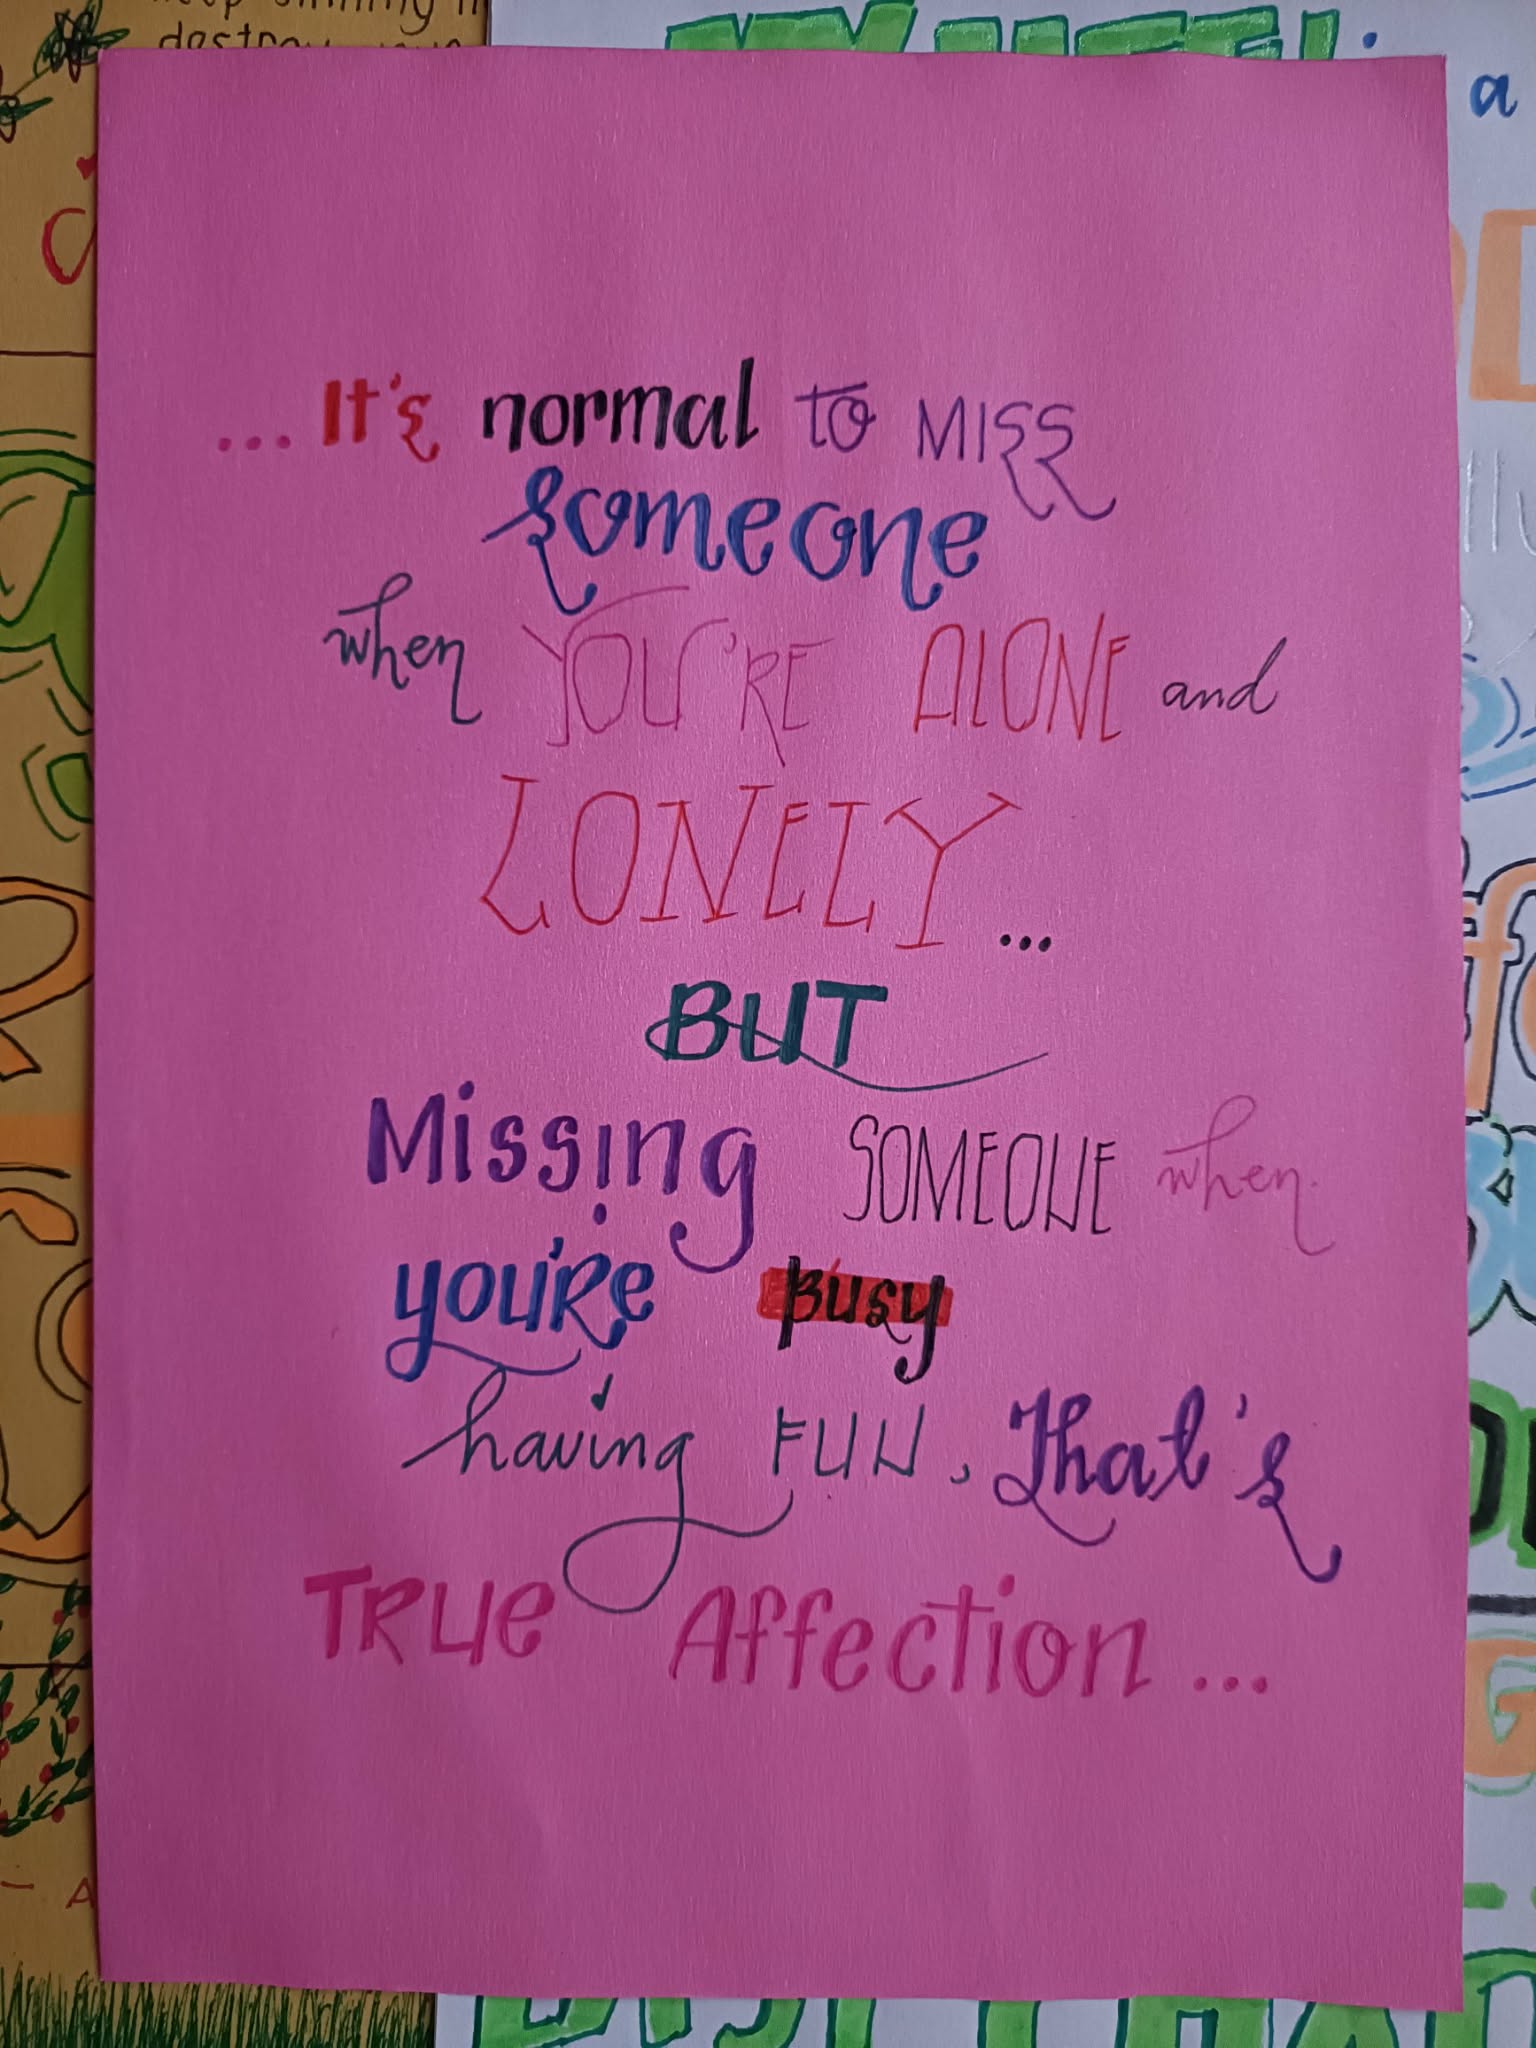 destroy
a
... It's normal to MISS
someone
when YOU'RE ALONE and
LONELY...
BUT
Missing SOMEONE when
you'Re Busy
having FUN, That's
TRUE Affection...